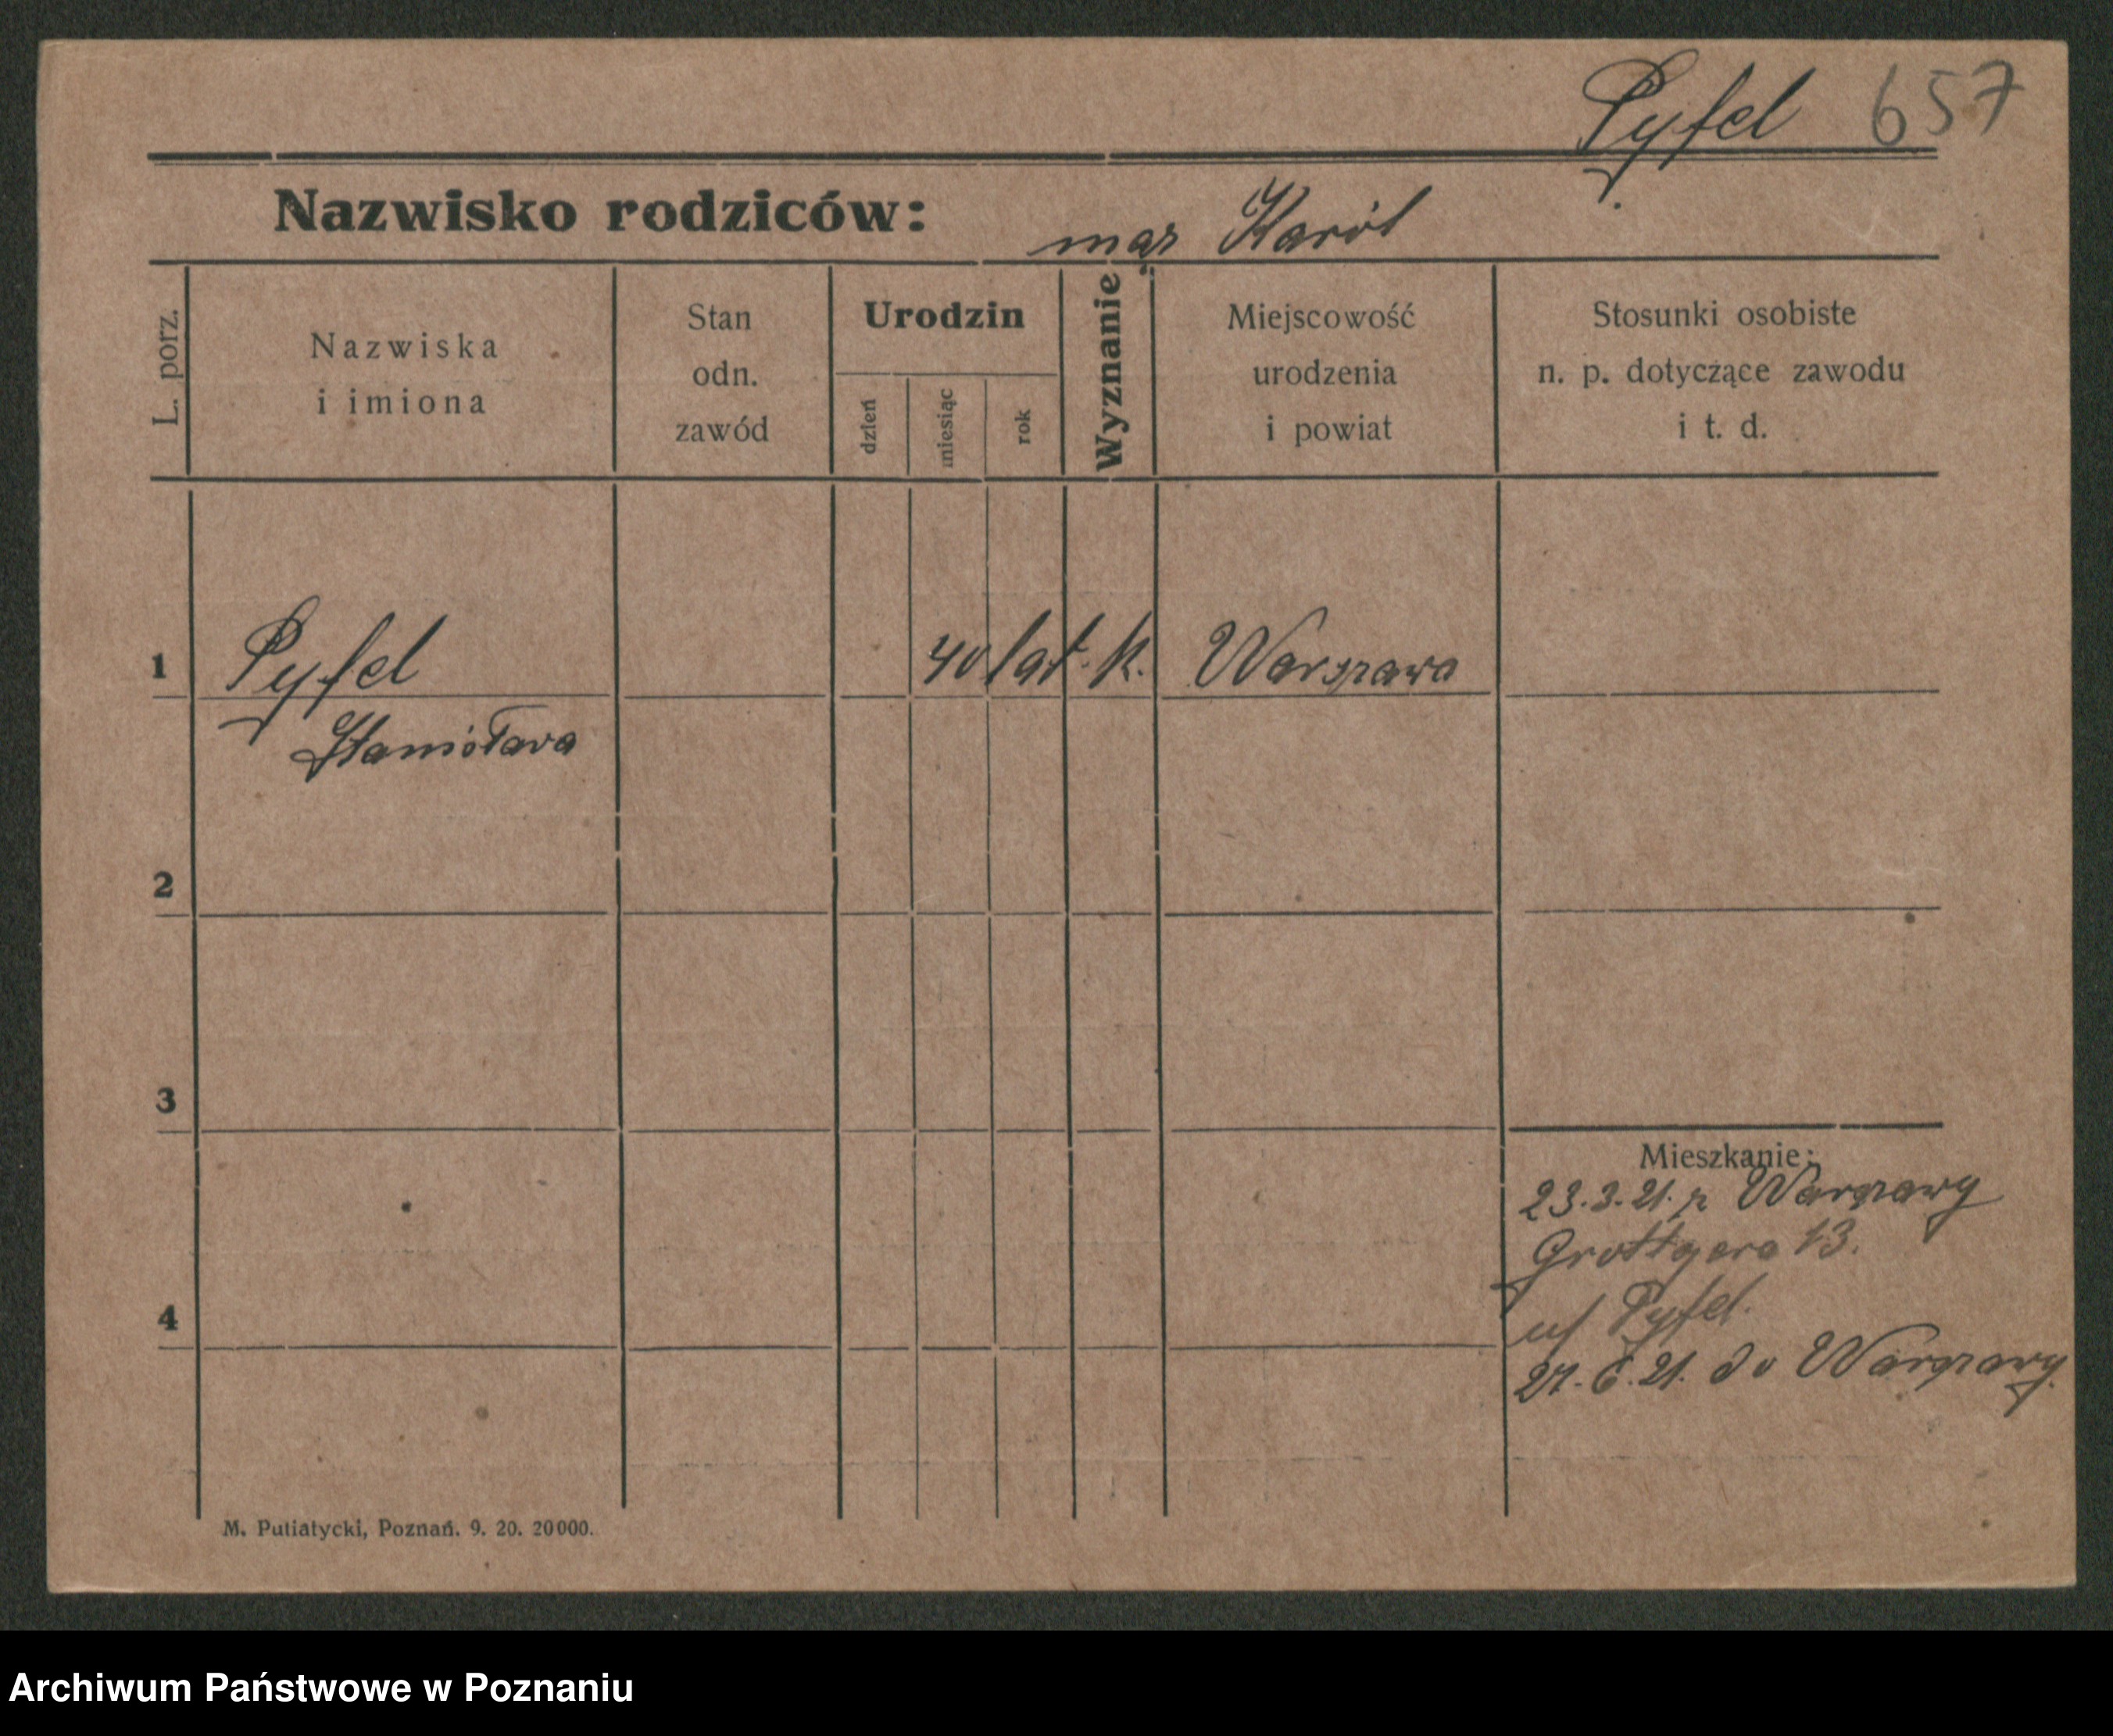 Pyfel 657
Nazwisko rodziców: mąż Karól
L. porz.
Nazwiska
i imiona
Stan
odn.
zawód
Urodzin
dzień
miesiąc
rok
Wyznanie
Miejscowość
urodzenia
i powiat
Stosunki osobiste
n. p. dotyczące zawodu
i t. d.
1 Pyfel 40 lat. k. Warszawa
Stanisława
2
3
Mieszkanie:
23.3.21. z Warszawy
Grottgera 13.
u/ Pyfel.
4
27.6.21. do Warszawy.
M. Putiatycki, Poznań. 9. 20. 20000.
Archiwum Państwowe w Poznaniu